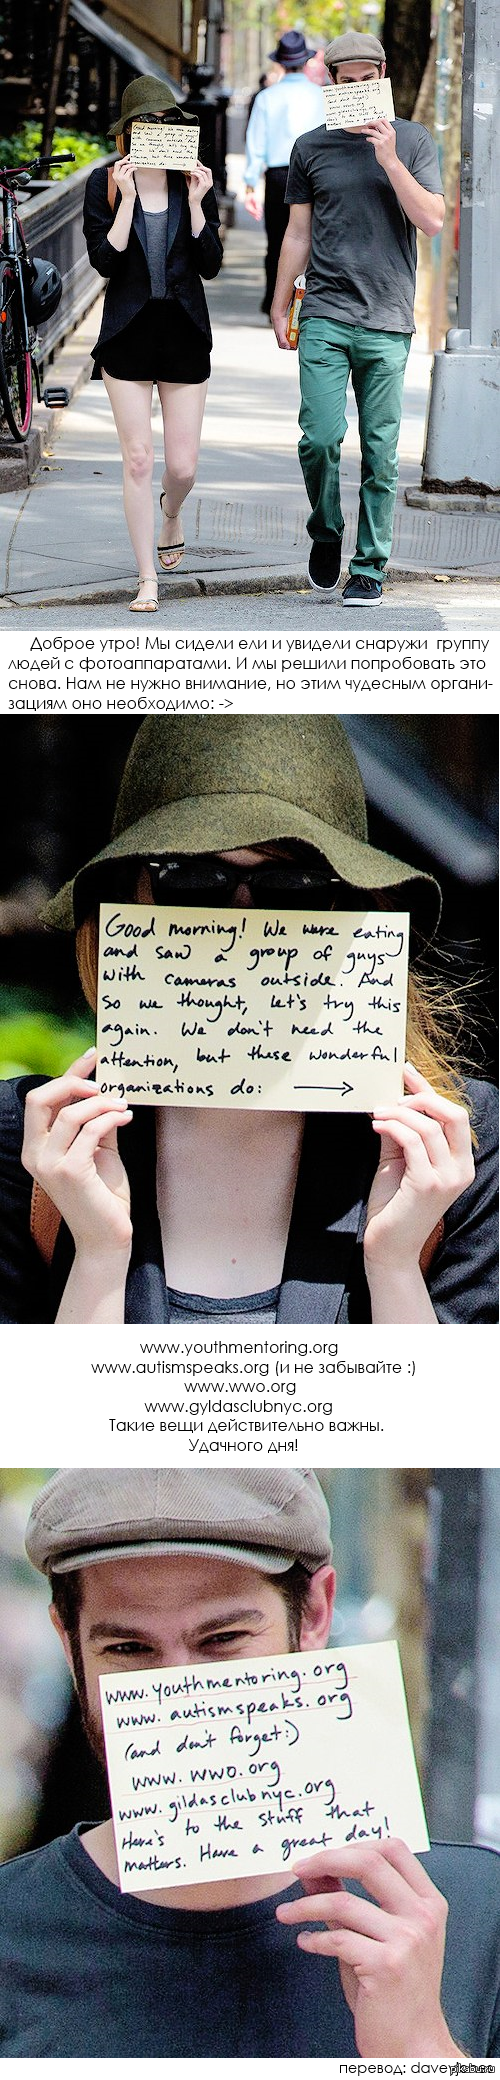 Доброе утро! Мы сидели ели и увидели снаружи группу
людей с фотоаппаратами. И мы решили попробовать это
снова. Нам не нужно внимание, но этим чудесным органи-
зациям оно необходимо: ->
Good morning! We were eating
and saw a group of guys
with cameras outside. And
so we thought, let's try this
again. We don't need the
attention, but these wonderful
organizations do: →
www.youthmentoring.org
www.autismspeaks.org (и не забывайте :)
www.wwo.org
www.gyldasclubnyc.org
Такие вещи действительно важны.
Удачного дня!
www.youthmentoring.org
www.autismspeaks.org
(and don't forget:)
www.wwo.org
www.gildasclubnyc.org
Here's to the stuff that
matters. Have a great day!
перевод: